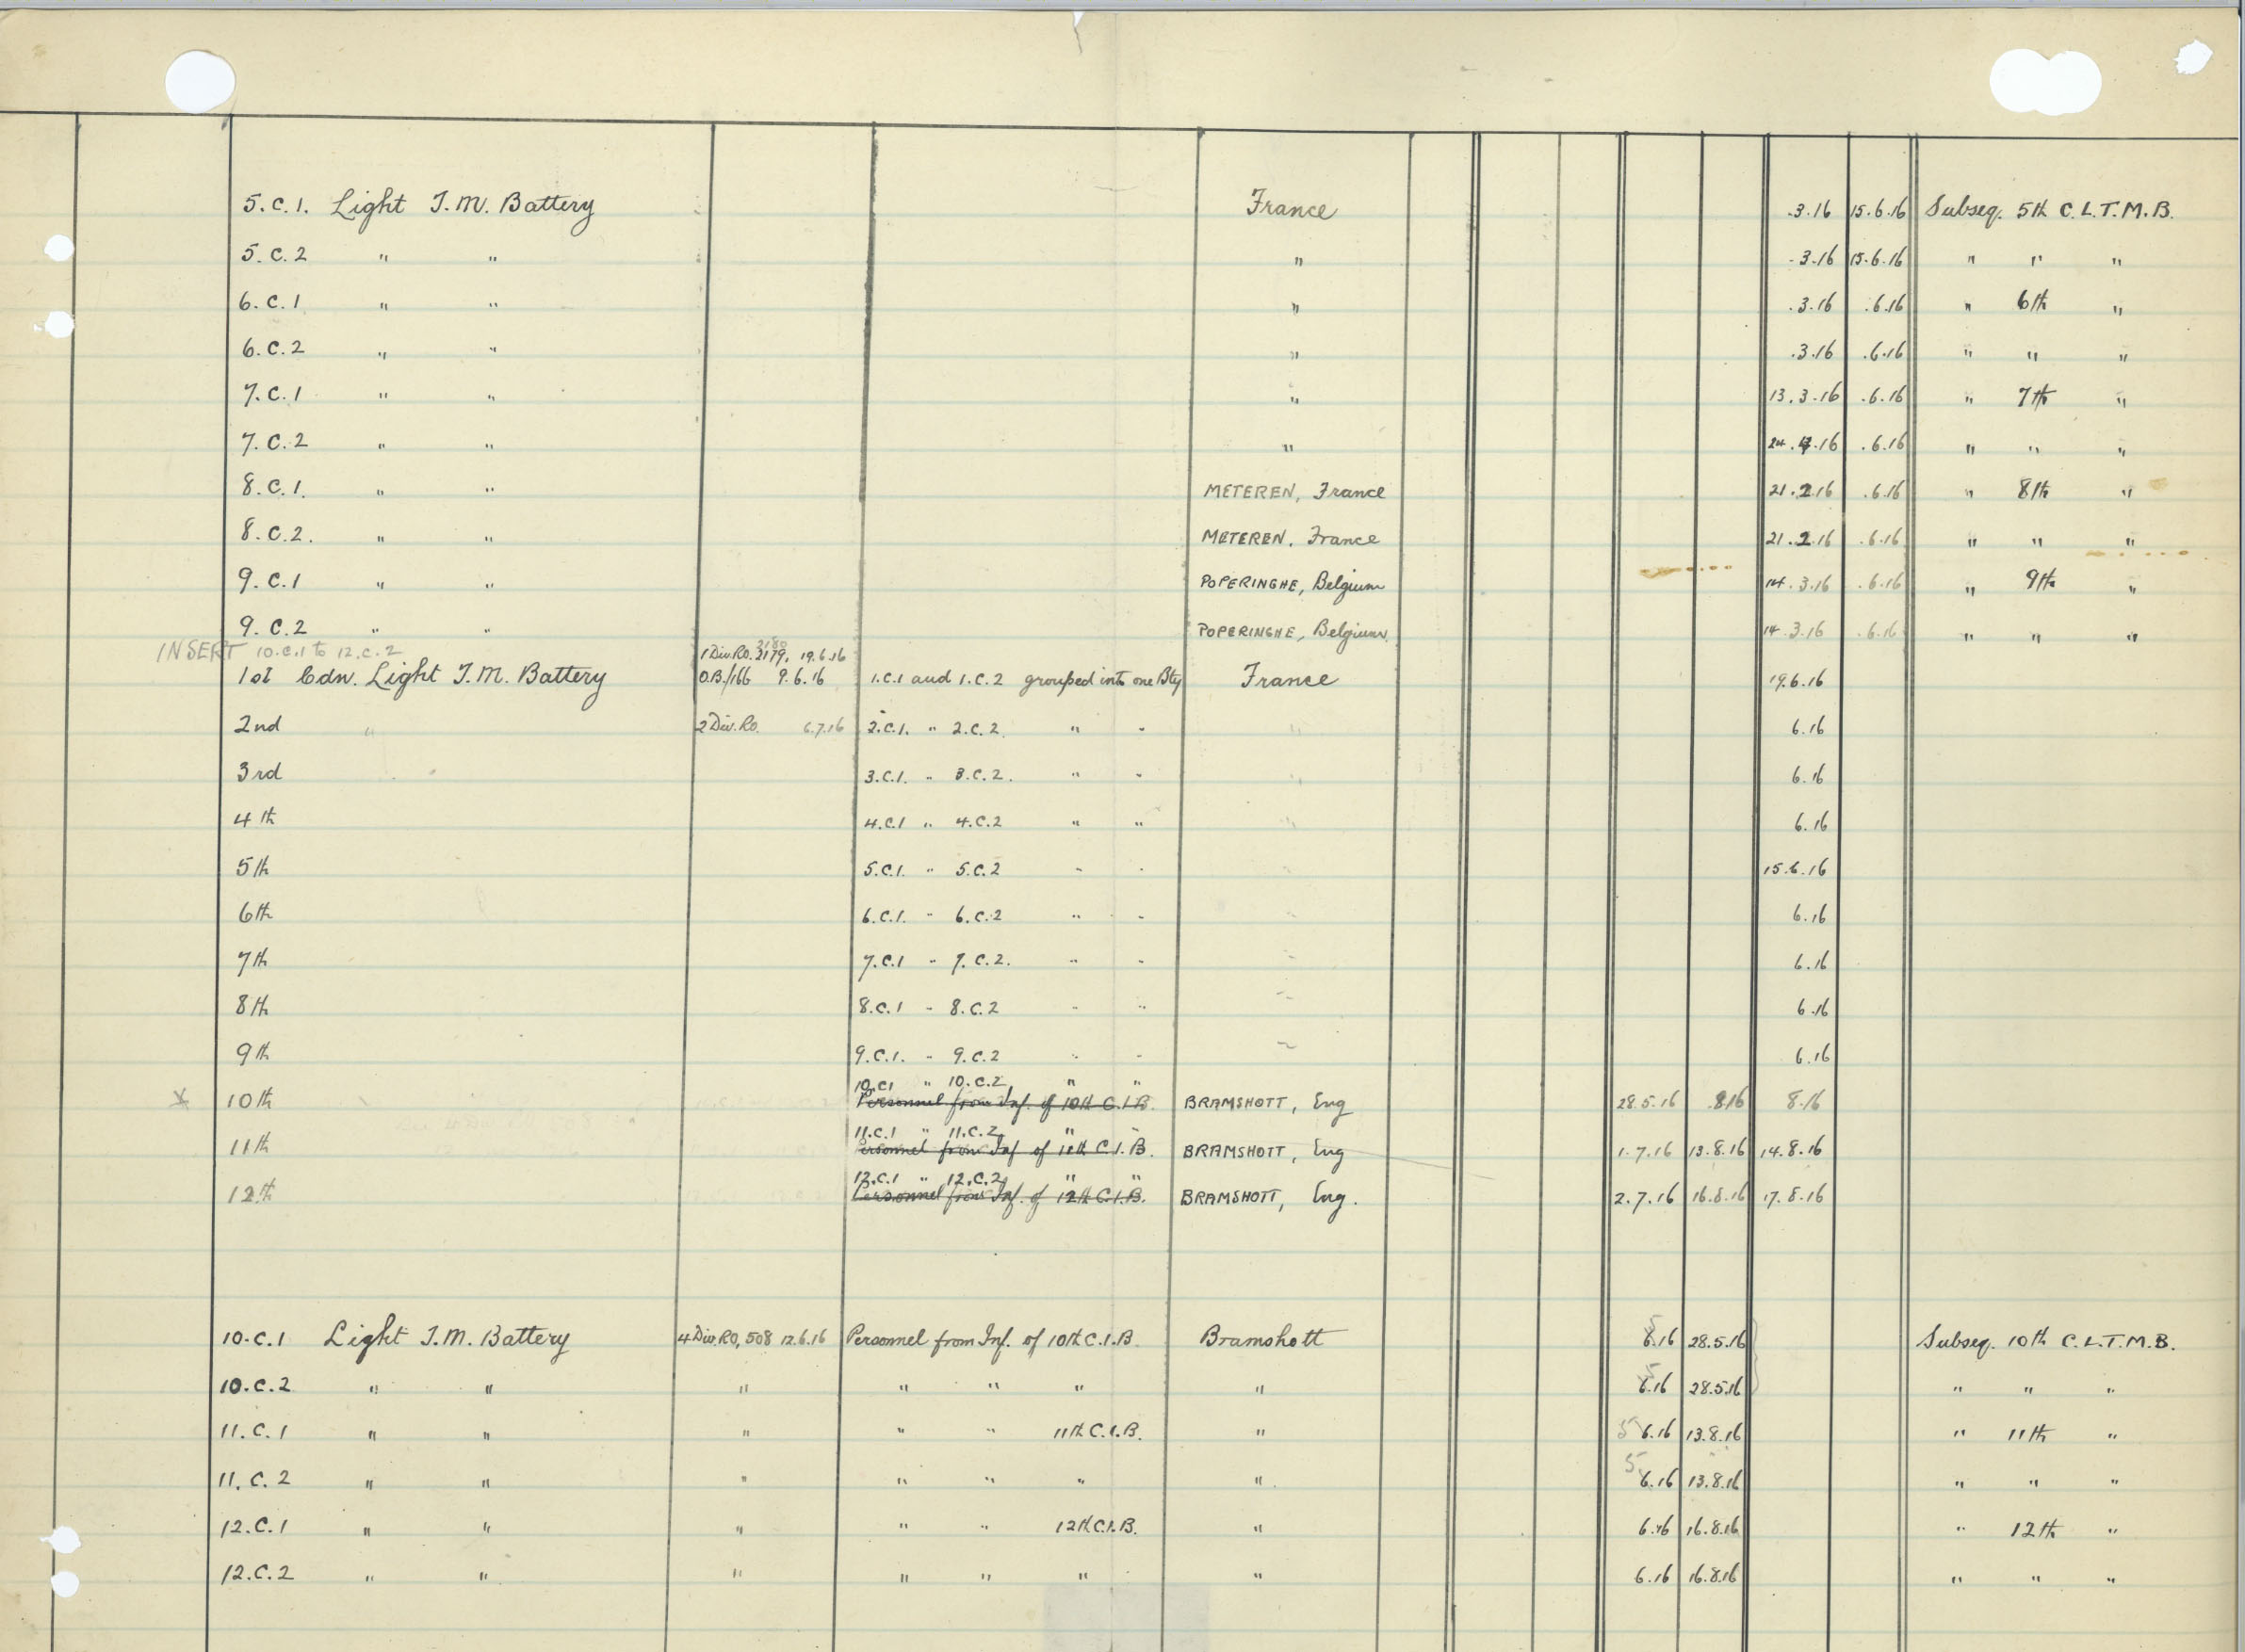 5.C.1. Light T.M. Battery France .3.16 15.6.16 Subseq. 5th C.L.T.M.B.
5.C.2 " " " .3.16 15.6.16 " " "
6.C.1 " " " .3.16 .6.16 " 6th "
6.C.2 " " " .3.16 .6.16 " " "
7.C.1 " " " 13.3.16 .6.16 " 7th "
7.C.2 " " " 24. .16 .6.16 " " "
8.C.1. " " METEREN, France 21.2.16 .6.16 " 8th "
8.C.2. " " METEREN, France 21.2.16 .6.16 " " "
9.C.1 " " POPERINGHE, Belgium 14.3.16 .6.16 " 9th "
9.C.2 " " POPERINGHE, Belgium 14.3.16 .6.16 " " "
INSERT 10.C.1 to 12.C.2
3180
1 Div. R.O. 3179, 19.6.16
1st Cdn. Light T.M. Battery O.B./166 9.6.16 1.C.1 and 1.C.2 grouped into one Bty France 19.6.16
2nd " 2 Div. R.O. 6.7.16 2.C.1. " 2.C.2. " " " 6.16
3rd 3.C.1. " 3.C.2. " " " 6.16
4th 4.C.1 " 4.C.2 " " " 6.16
5th 5.C.1. " 5.C.2 " " " 15.6.16
6th 6.C.1. " 6.C.2 " " " 6.16
7th 7.C.1 " 7.C.2. " " " 6.16
8th 8.C.1 " 8.C.2 " " " 6.16
9th 9.C.1. " 9.C.2 " " " 6.16
10.C.1 " 10.C.2 " "
x 10th Personnel from Inf. of 10th C.I.B. BRAMSHOTT, Eng 28.5.16 .8.16 8.16
11.C.1 " 11.C.2 " "
11th Personnel from Inf of 11th C.I.B. BRAMSHOTT, Eng 1.7.16 13.8.16 14.8.16
12.C.1 " 12.C.2 " "
12th Personnel from Inf. of 12th C.I.B. BRAMSHOTT, Eng. 2.7.16 16.8.16 17.8.16
10.C.1 Light T.M. Battery 4 Div. RO, 508 12.6.16 Personnel from Inf. of 10th C.I.B. Bramshott 5 6.16 28.5.16 Subseq. 10th C.L.T.M.B.
10.C.2 " " " " " " " 5 6.16 28.5.16 " " "
11.C.1 " " " " " 11th C.I.B. " 5 6.16 13.8.16 " 11th "
11.C.2 " " " " " " " 5 6.16 13.8.16 " " "
12.C.1 " " " " " 12th C.I.B. " 6.16 16.8.16 " 12th "
12.C.2 " " " " " " " 6.16 16.8.16 " " "